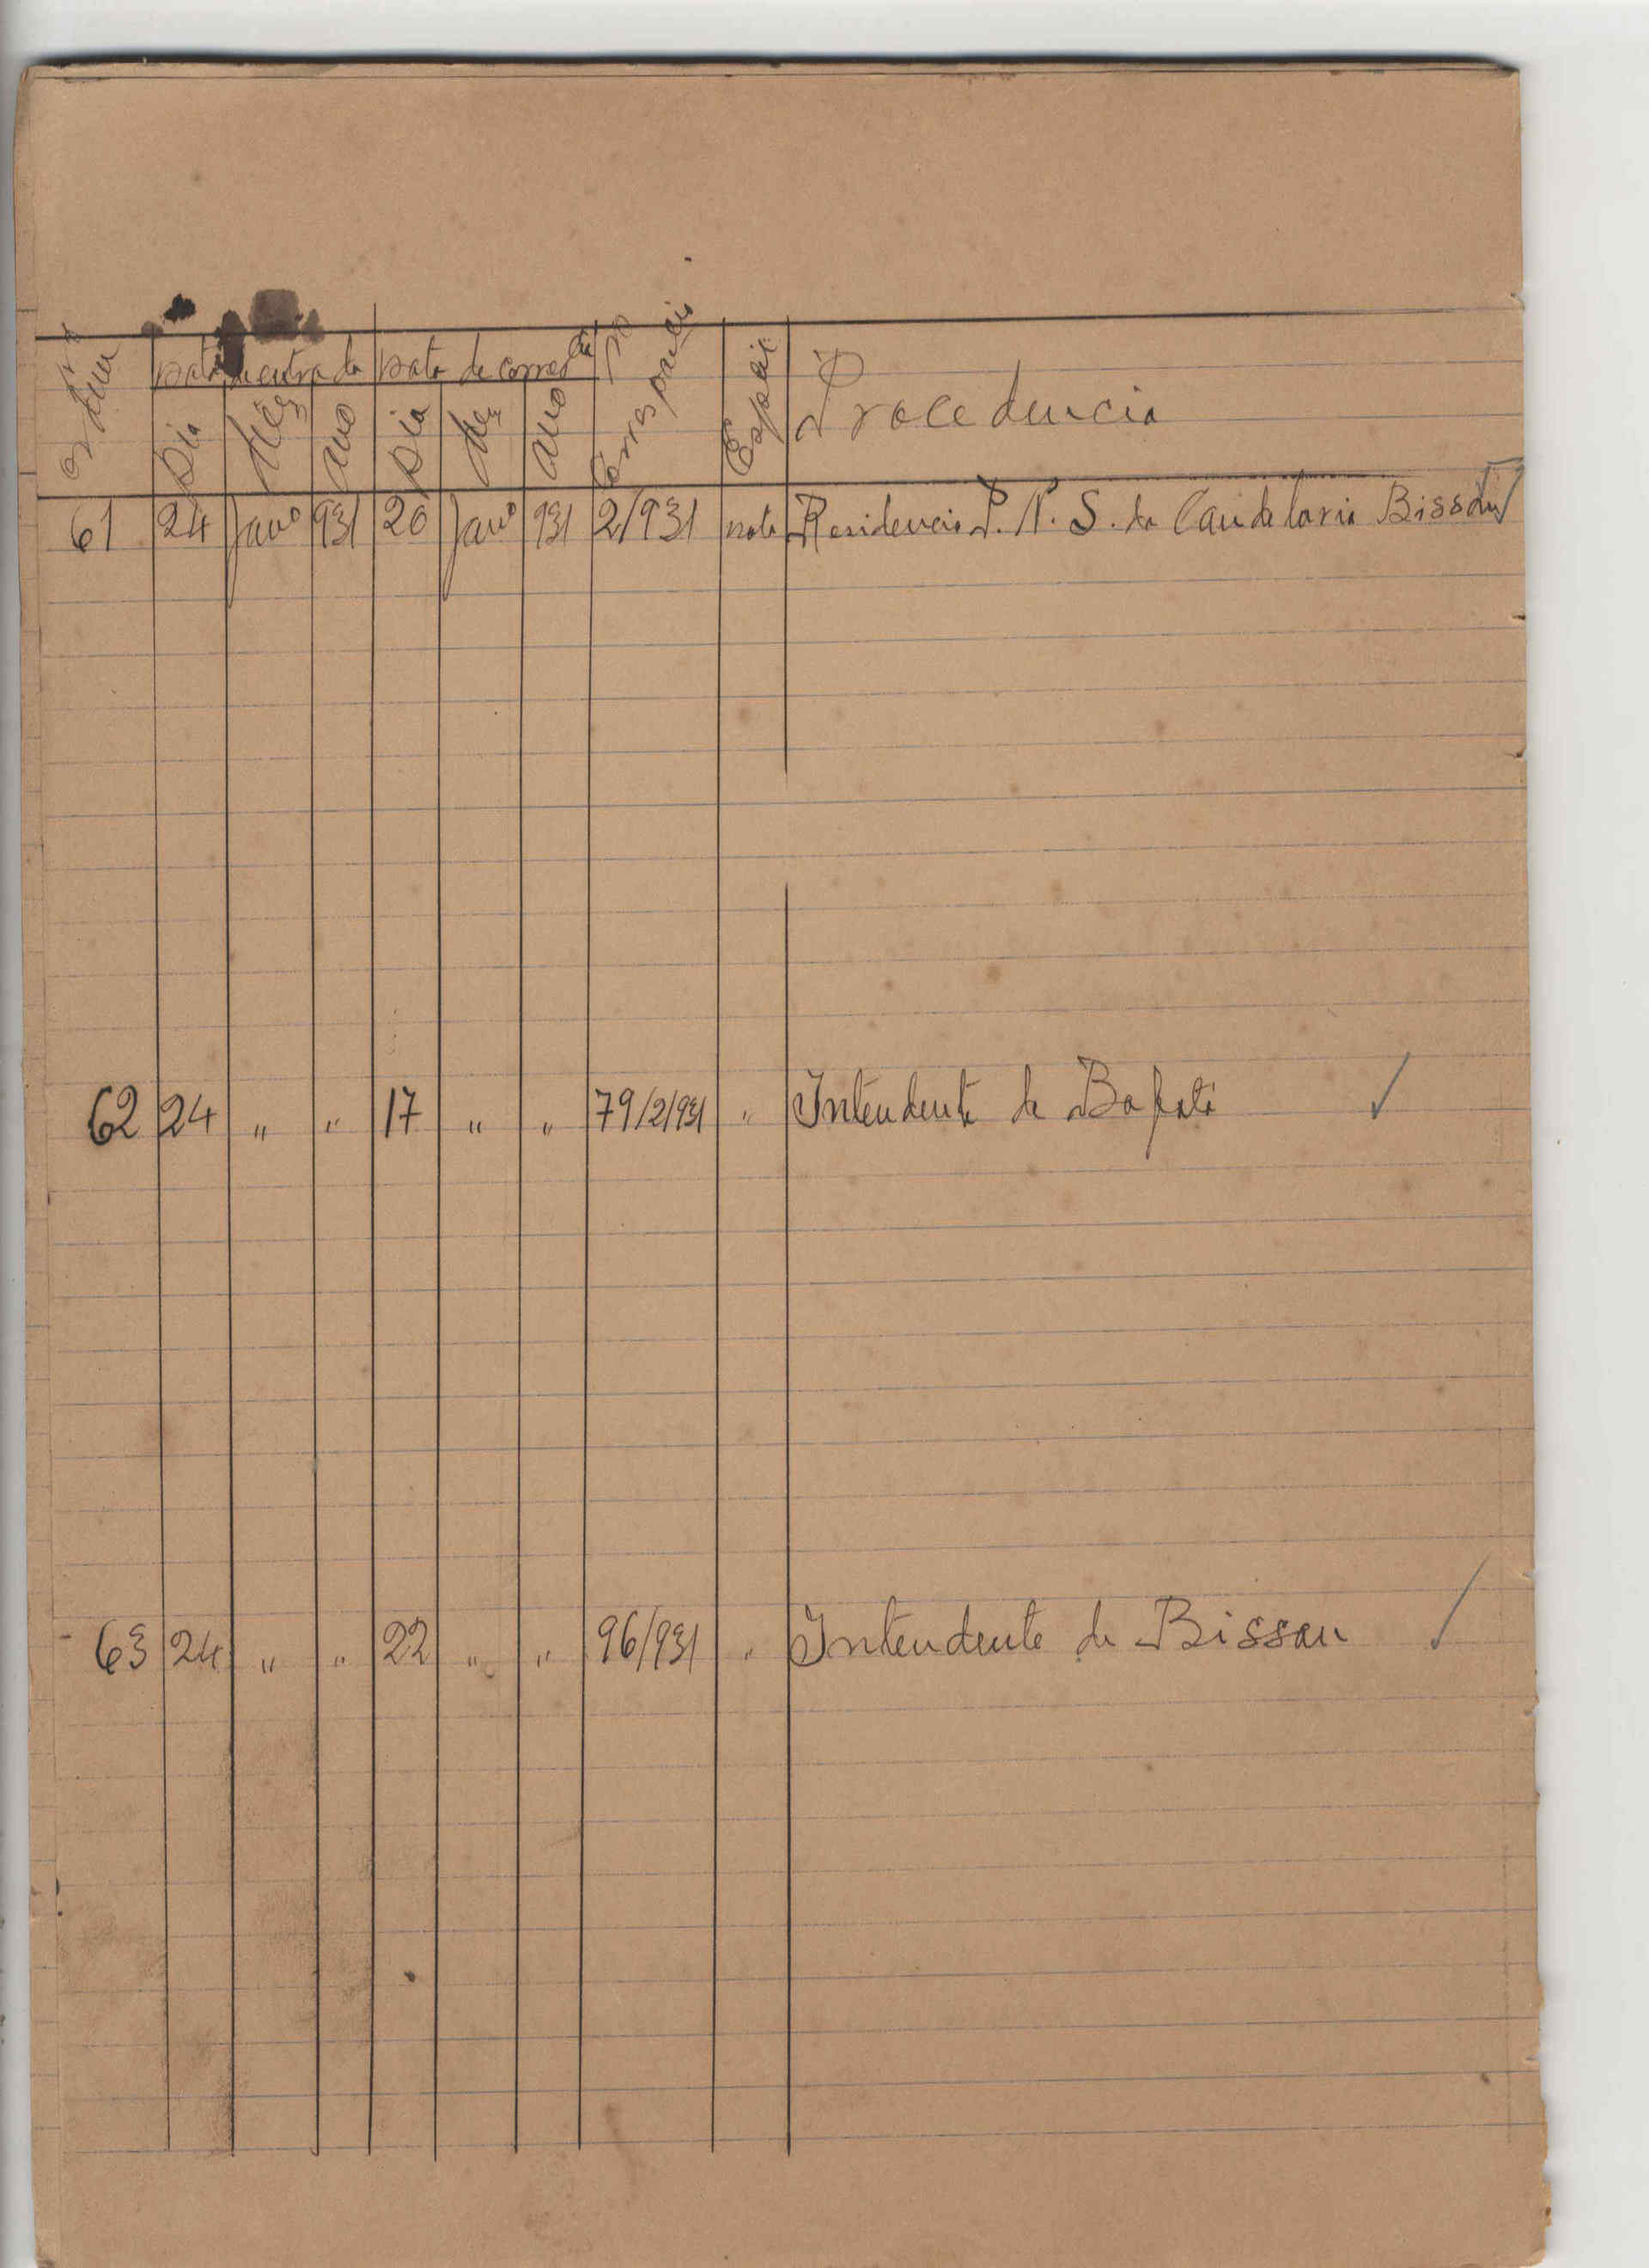 Nº Ordem Data de entrada Data de corresp.cia Nº Correspondencia Especie Procedencia
Dia Mês Ano Dia Mês Ano
61 24 Janº 931 20 Janº 931 2/931 Nota Residencia P. N. S. da Candelaria Bissau
62 24 " " 17 " " 79/2/931 " Intendente de Bafatá
63 24 " " 22 " " 96/931 " Intendente de Bissau